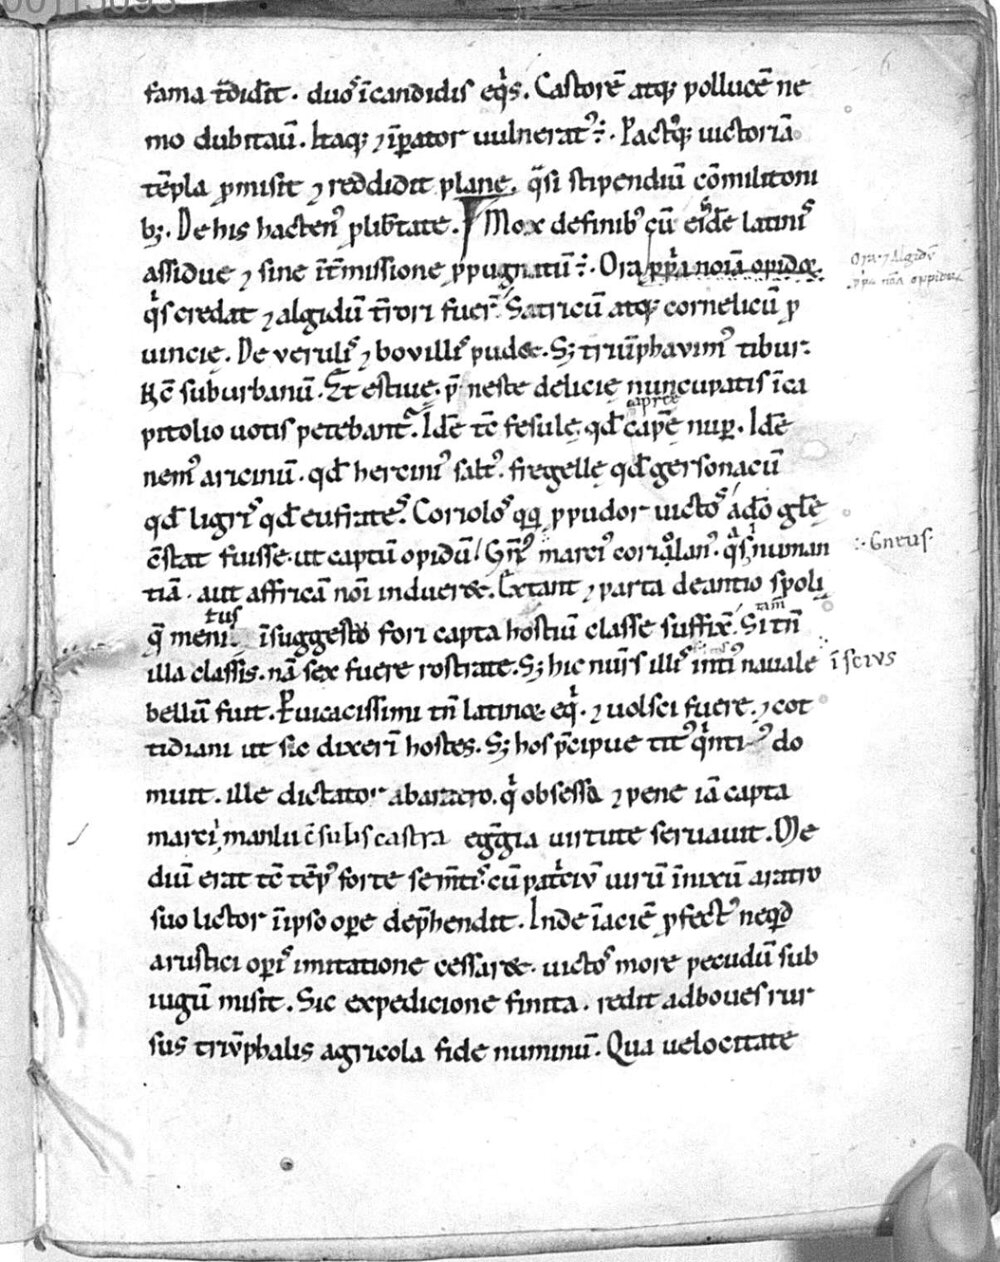 fama t̄didit. duoſ ī candidis eq̇s. Caſtorē atq; pollucē ne
mo dubitau̅. Itaq; ⁊ īꝑator uulneratꝰ:. Pactꝰq; uictoriā
tēpla ꝓmiſit ⁊ reddidit plane. q̄ſi ſtipendiū cōmilitoni
b;. De his hactenꝰ ꝓ lib̄tate. Mox de finibꝰ cū eiſdē latiniſ
aſſidue ⁊ ſine īt̄miſſione ꝓpugnatū:. Ora
q̇s credat ⁊ algidū t̄rori fuer̄. Satricū atq; cornelicū ꝓ
uincię. De veruliſ ⁊ bovilliſ pudet. S; triūphavimꝰ tibur.
ſuburbanū. Et eſtiuę p̄neſte delicię nuncupatis ī ca
pitolio uotiſ petebant̄. Idē tc̄ feſulę qd̄ capē nuꝑ. Idē
nemꝰ aricinū. qd̄ herciniꝰ ſaltꝰ. fregellę qd̄ geſonacū
qd̄ ligriſ qd̄ eufrateſ. Coriolos qq ꝓ pudor uictoſ adō glē
ēſtat fuiſſe. ut captū opidū Gn̄ꝰ marciꝰ coriolanꝰ. q̄ſi numan
tiā. aut affricā nōi induer&. Extant ⁊ parta de antio ſpolia
q̄ meni. ī ſuggeſto fori capta hoſtiū claſſe ſuffix̄. Si tn̄
tus
tam̄
illa claſſis. nā ſex fuere roſtrate. S; hic nūſ illiſ initiꝰ nauale
bellū fuit. Pͥuicaciſſimi tn̄ latinoꝝ. eq̇ ⁊ uolſci fuere. ⁊ cot
tidiani ut ſic dixerī hoſtes. S; hoſ p̄cipue titꝰ q̇ntiꝰ do
muit. ille dictator ab aratro. q̇ obſeſſa ⁊ pene iā capta
marci manlii c̄ſulis caſtra egͣgia uirtute ſeruauit. Me
diū erat tc̄ tēpꝰ forte ſem̄tiſ. cū patͥciū uirū īnixū aratro
ſuo lictor ī ipſo oꝑe dep̄hendit. Inde ī aciē ꝓfectꝰ ne qͥd
a ruſtici oꝑiſ imitatione ceſſar&. uictoſ more pecudū ſub
iugū miſit. Sic expedicione finita. redit ad boueſ rur
ſus triūphalis agricola fide numinū. Qua uelocitate
:. Gneus.